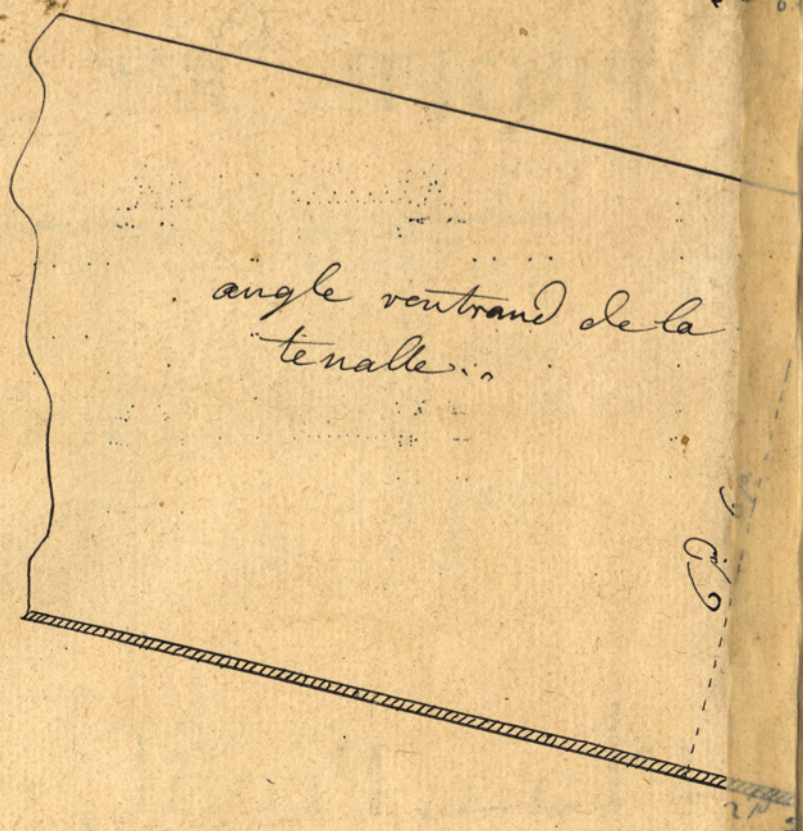 angle rentrand de la
tenalle..
6 p. 6 p
2 p.